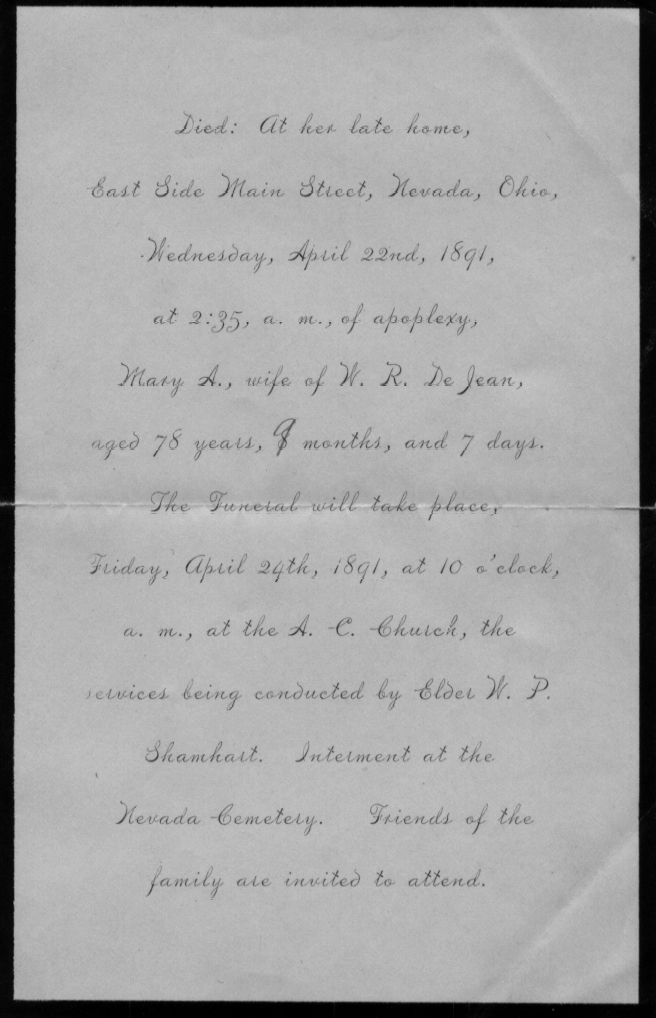 Died: At her late home,
East Side Main Street, Nevada, Ohio,
Wednesday, April 22nd, 1891,
at 2:35, a. m., of apoplexy,
Mary A., wife of W. R. De Jean,
aged 78 years, months, and 7 days.
The Funeral will take place,
Friday, April 24th, 1891, at 10 o'clock,
a. m., at the A. C. Church, the
services being conducted by Elder W. P.
Shamhart. Interment at the
Nevada Cemetery. Friends of the
family are invited to attend.